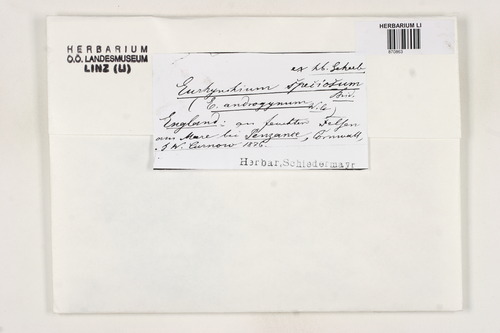 HERBARIUM LI
HERBARIUM
O.Ö. LANDESMUSEUM
LINZ (LI)
ex hb.
Eurhynchium speciosum
Brid.
(E. androgynum Wils.)
England: an feuchten Felsen
am Meere bei Penzance, Cornwall,
W. Curnow 1876.
Herbar. Schiedermayr